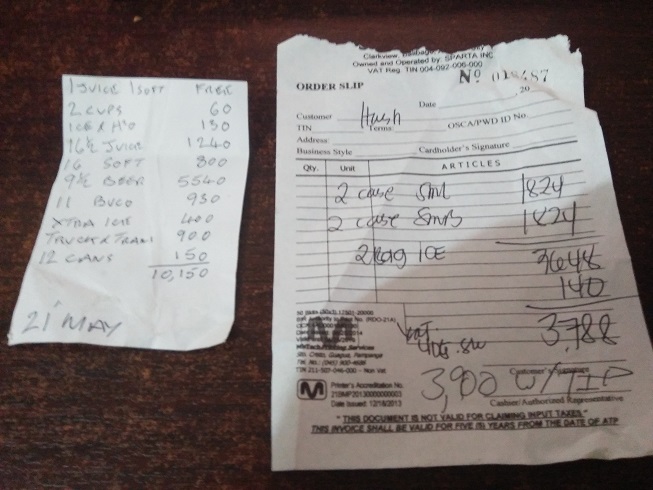 1 JUICE 1 SOFT FREE
2 CUPS 60
ICE & H²O 130
16½ JUICE 1240
16 SOFT 800
9½ BEER 5540
11 BUCO 930
XTRA ICE 400
TRUCK & TRANS 900
12 CANS 150
10,150
21ST MAY
Owned and Operated by: SPARTA INC
VAT Reg. TIN 004-092-006-000
ORDER SLIP
Date , 20
Customer Hash
TIN Terms OSCA/PWD ID No.
Address:
Business Style Cardholder's Signature
Qty. Unit ARTICLES
2 case SML 1824
2 case SMB 1824
2 Bag ICE 3648
140
3,788
Customer's Signature
3,900 W/TIP
Cashier/Authorized Representative
Sta. Cruz, Guagua, Pampanga
TIN 211-507-046-000 - Non Vat
M Printer's Accreditation No.
21BMP20130000000003
Date Issued: 12/18/2013
"THIS DOCUMENT IS NOT VALID FOR CLAIMING INPUT TAXES."
THIS INVOICE SHALL BE VALID FOR FIVE (5) YEARS FROM THE DATE OF ATP